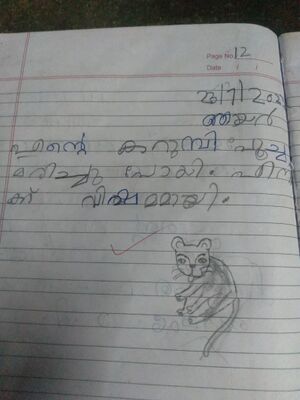 Page No. 12
Date / /
ഞയർ
എന്റെ കറുമ്പി പൂച്ച
മരിച്ചു പോയി. എനി
ക് വിഷമമായി.